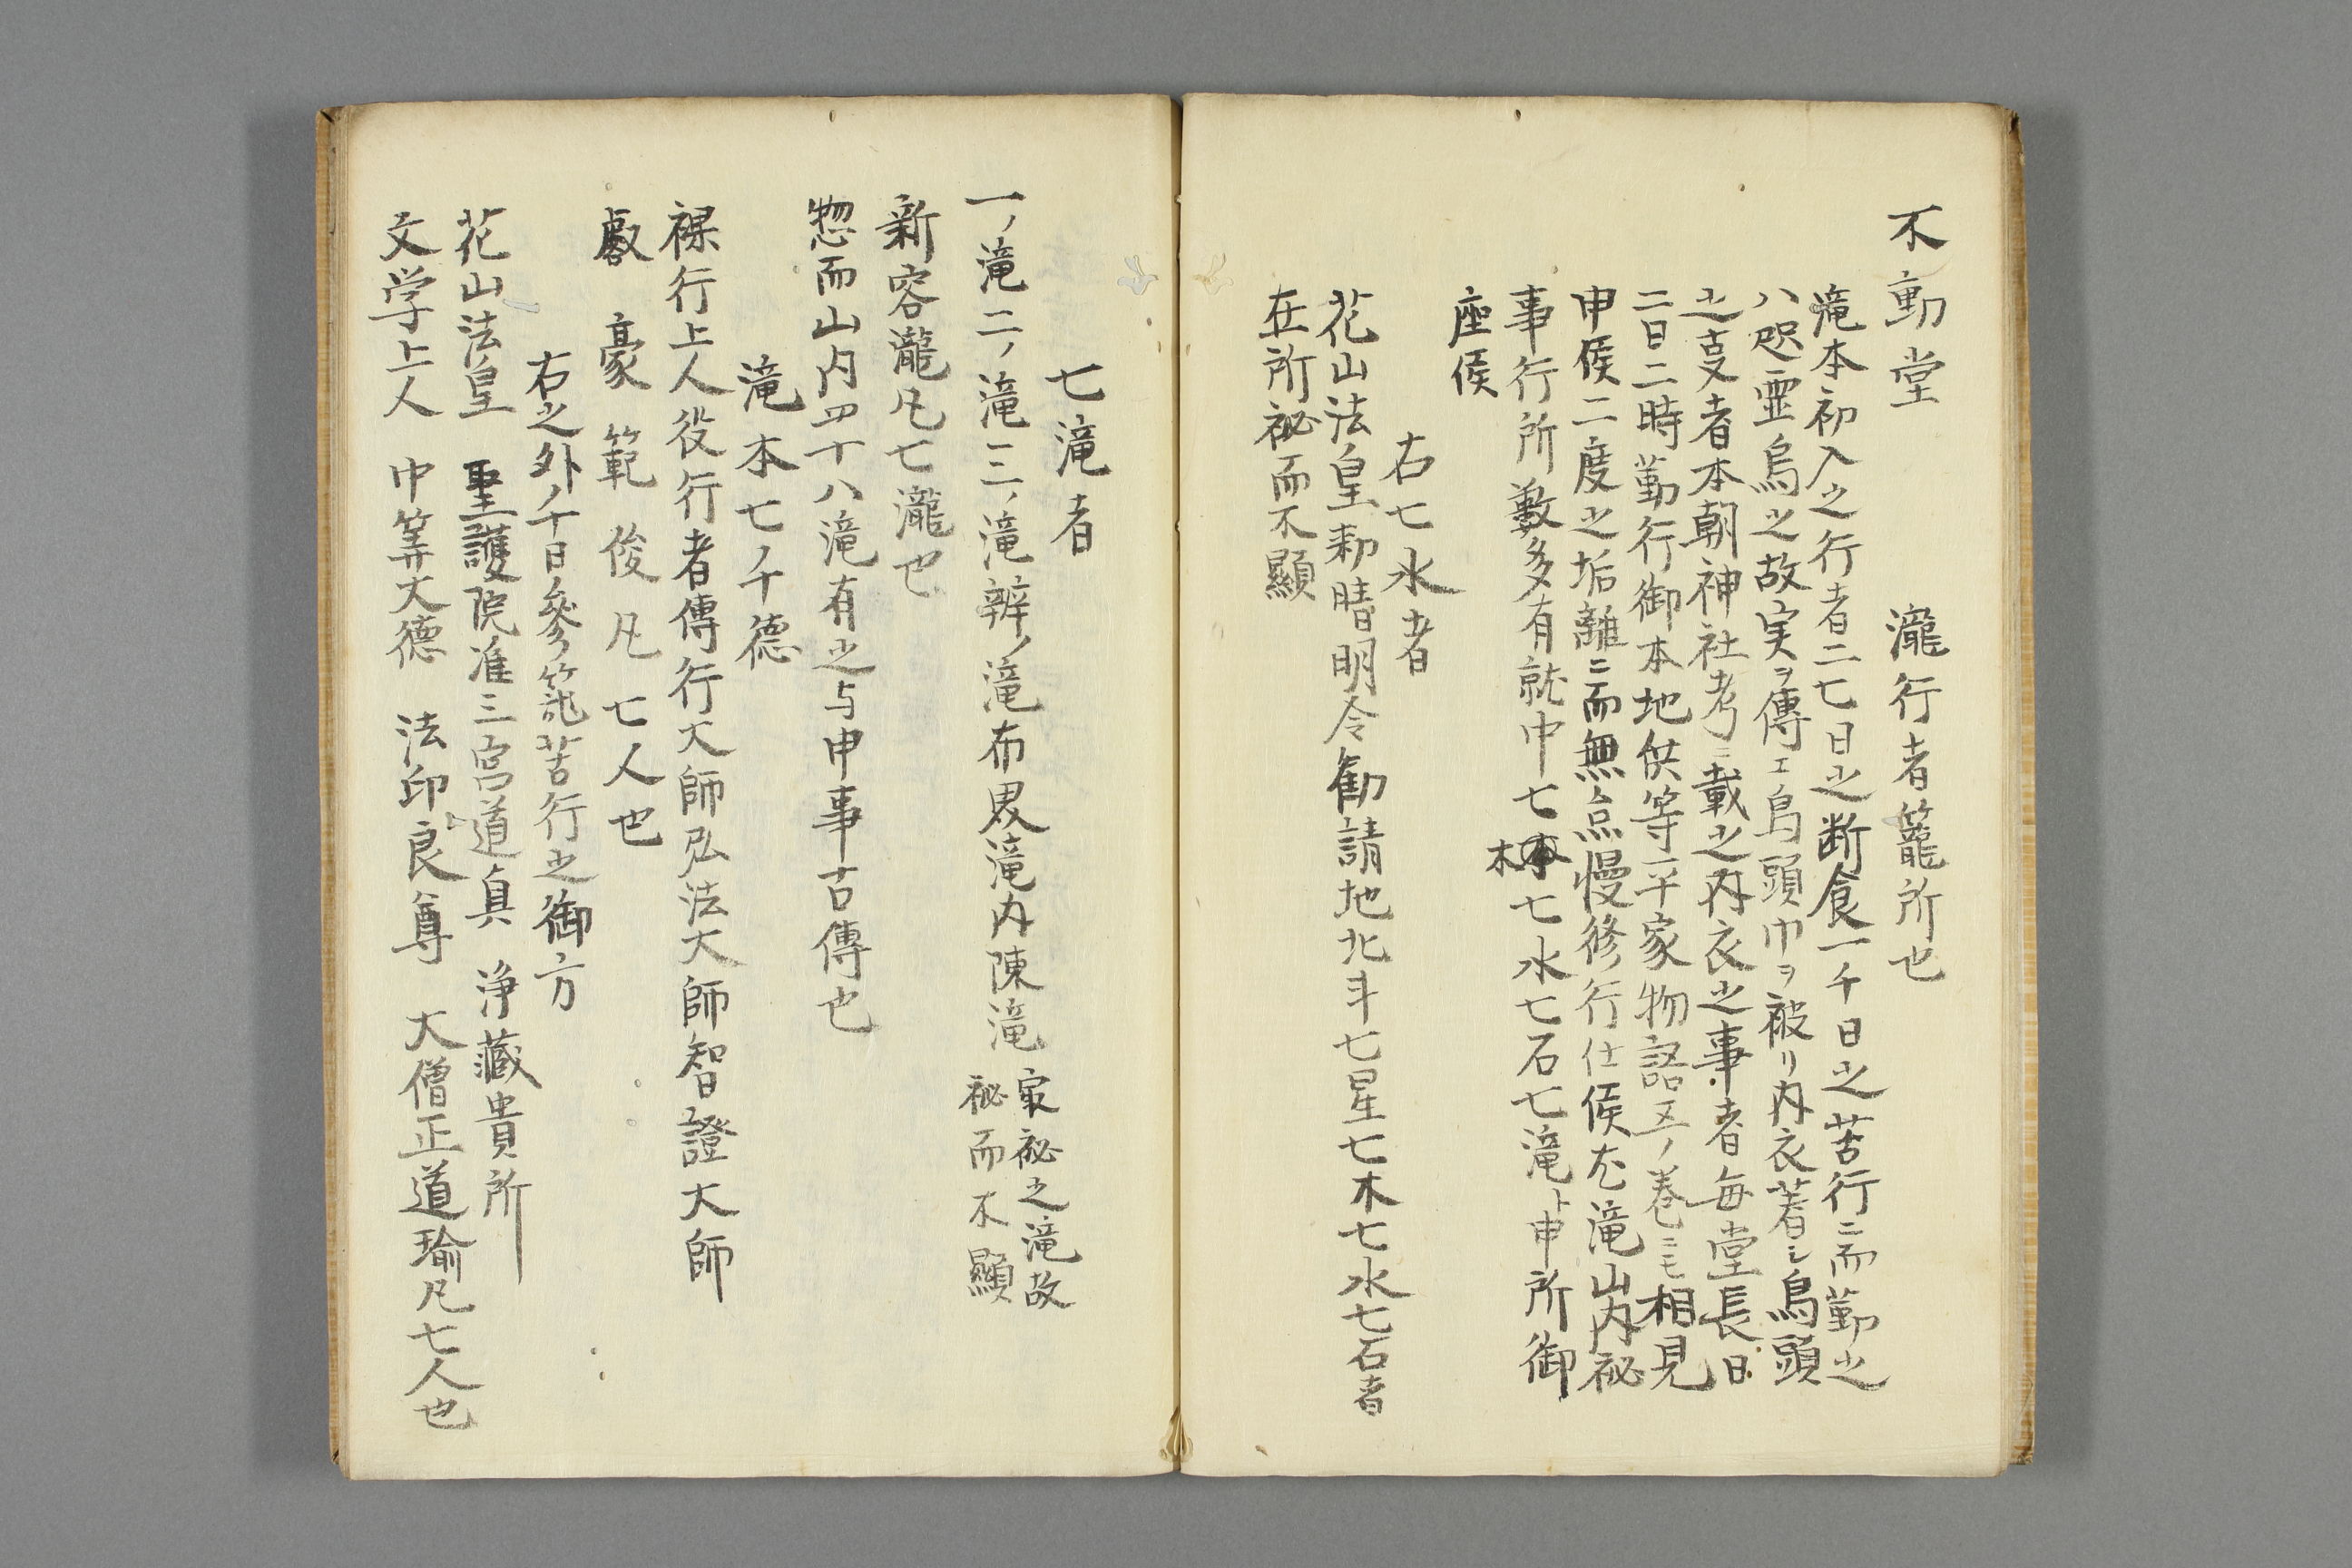 不動堂　瀧行者籠所也
滝本初入之行者二七日之断食一千日之苦行ニ而勤之
八咫霊烏之故実ヲ傳エ烏頭巾ヲ被リ内衣著シ烏頭
之支者本朝神社考ニ載之内衣之事者毎堂長日
二日二時勤行御本地供等平家物語五ノ巻ニモ相見
申候二度之垢離ニ而無怠慢修行仕候尤滝山内祕
事行所數多有就中七木七水七石七滝ト申所御
座候
右七水者
花山法皇勅晴明令勧請地北斗七星七木七水七石者
在所祕而不顯
七滝者
一ノ滝二ノ滝三ノ滝辨ノ滝布畏滝内陳滝
家祕之滝故
祕而不顯
新客瀧凡七瀧也
惣而山内四十八滝有之与申事古傳也
滝本七千德
裸行上人役行者傳行大師弘法大師智證大師
叡豪範俊凡七人也
右之外ノ千日參籠苦行之御方
花山法皇　聖護院准三宮道真　浄藏貴所
文学上人　中等大德　法印良尊　大僧正道瑜凡七人也